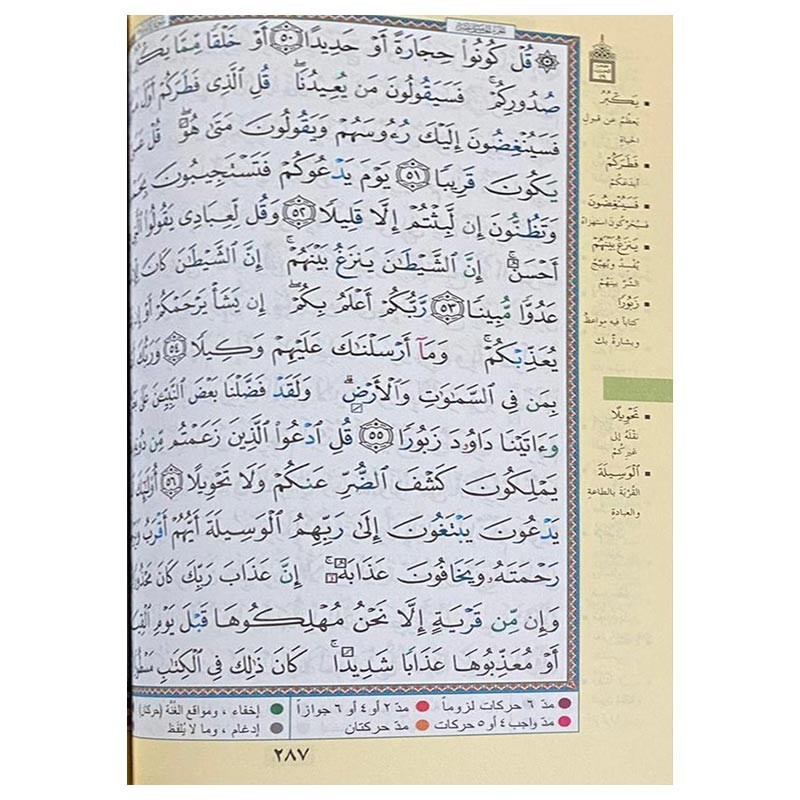 ۞ قُلْ كُونُوا۟ حِجَارَةً أَوْ حَدِيدًا ﴿٥٠﴾ أَوْ خَلْقًا مِّمَّا
صُدُورِكُمْ ۚ فَسَيَقُولُونَ مَن يُعِيدُنَا ۖ قُلِ ٱلَّذِى فَطَرَكُمْ أَوَّلَ
فَسَيُنْغِضُونَ إِلَيْكَ رُءُوسَهُمْ وَيَقُولُونَ مَتَىٰ هُوَ ۖ قُلْ
يَكُونَ قَرِيبًا ﴿٥١﴾ يَوْمَ يَدْعُوكُمْ فَتَسْتَجِيبُونَ
وَتَظُنُّونَ إِن لَّبِثْتُمْ إِلَّا قَلِيلًا ﴿٥٢﴾ وَقُل لِّعِبَادِى يَقُولُوا۟
أَحْسَنُ ۚ إِنَّ ٱلشَّيْطَٰنَ يَنزَغُ بَيْنَهُمْ ۚ إِنَّ ٱلشَّيْطَٰنَ كَانَ
عَدُوًّا مُّبِينًا ﴿٥٣﴾ رَّبُّكُمْ أَعْلَمُ بِكُمْ ۖ إِن يَشَأْ يَرْحَمْكُمْ أَوْ
يُعَذِّبْكُمْ ۚ وَمَآ أَرْسَلْنَٰكَ عَلَيْهِمْ وَكِيلًا ﴿٥٤﴾ وَرَبُّكَ
بِمَن فِى ٱلسَّمَٰوَٰتِ وَٱلْأَرْضِ ۗ وَلَقَدْ فَضَّلْنَا بَعْضَ ٱلنَّبِيِّۦنَ عَلَىٰ
وَءَاتَيْنَا دَاوُۥدَ زَبُورًا ﴿٥٥﴾ قُلِ ٱدْعُوا۟ ٱلَّذِينَ زَعَمْتُم مِّن
يَمْلِكُونَ كَشْفَ ٱلضُّرِّ عَنكُمْ وَلَا تَحْوِيلًا ﴿٥٦﴾ أُو۟لَٰٓئِكَ
يَدْعُونَ يَبْتَغُونَ إِلَىٰ رَبِّهِمُ ٱلْوَسِيلَةَ أَيُّهُمْ أَقْرَبُ
رَحْمَتَهُۥ وَيَخَافُونَ عَذَابَهُۥٓ ۚ إِنَّ عَذَابَ رَبِّكَ كَانَ
وَإِن مِّن قَرْيَةٍ إِلَّا نَحْنُ مُهْلِكُوهَا قَبْلَ يَوْمِ
أَوْ مُعَذِّبُوهَا عَذَابًا شَدِيدًا ۚ كَانَ ذَٰلِكَ فِى ٱلْكِتَٰبِ
▪ يَكْبُرُ
يَعْظُمُ عن قبولِ
الحياةِ
▪ فَطَرَكُمْ
أبدَعَكُمْ
▪ فَسَيُنْغِضُونَ
فسيُحرِّكون استهزاءً
▪ يَنزَغُ بَيْنَهُمْ
يُفْسِدُ ويُهيِّجُ
الشَّرَّ بَيْنَهُمْ
▪ زَبُورًا
كتاباً فيه مواعظُ
وبشارةٌ بك
▪ تَحْوِيلًا
نَقْلَهُ إلى
غيرِكُمْ
▪ ٱلْوَسِيلَةَ
القُرْبَةَ بالطاعةِ
والعبادةِ
مدّ ٦ حركات لزوماً مدّ ٢ أو ٤ أو ٦ جوازاً إخفاء ، ومواقع الغُنَّة (حركتان)
مدّ واجب ٤ أو ٥ حركات مدّ حركتان إدغام ، وما لا يُلفَظ
٢٨٧